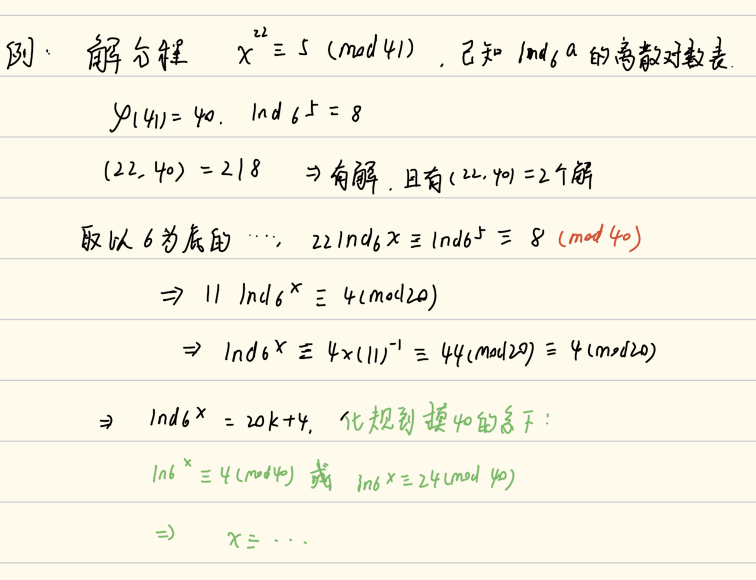 例: 解方程 x²² ≡ 5 (mod 41), 已知 Ind₆a 的离散对数表.
φ(41) = 40. Ind₆5 = 8
(22, 40) = 2|8 ⇒ 有解, 且有 (22, 40) = 2个解
取以6为底的 ···, 22 Ind₆x ≡ Ind₆5 ≡ 8 (mod 40)
⇒ 11 Ind₆x ≡ 4 (mod 20)
⇒ Ind₆x ≡ 4×(11)⁻¹ ≡ 44 (mod 20) ≡ 4 (mod 20)
⇒ Ind₆x = 20k+4, 化规到模40的条下:
In6x ≡ 4 (mod 40) 或 in6x ≡ 24 (mod 40)
⇒ x ≡ ···